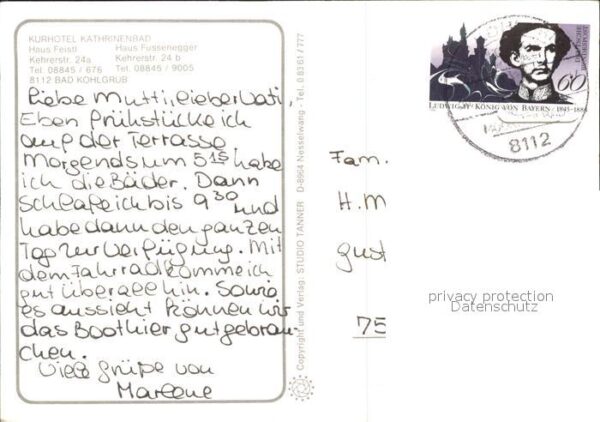 KURHOTEL-KATHRINENBAD
Haus Feistl Haus Fussenegger
Kehrerstr. 24a Kehrerstr. 24 b
Tel. 08845 / 676 Tel. 08845 / 9005
8112 BAD KOHLGRUB
Liebe Mutti, lieber Vati,
Eben frühstücke ich
auf der Terrasse.
Morgens um 5 15 habe
ich die Bäder. Dann
schlafe ich bis 9 30 und
habe dann den ganzen
Tag zur Verfügung. Mit
dem Fahrrad komme ich
gut überall hin. Sowie
es aussieht können wir
das Boot hier gut gebrau-
chen.
Viele Grüße von
Marlene
Copyright und Verlag: STUDIO TANNER D-8964 Nesselwang - Tel. 0 83 61 / 777
LUDWIG II · KÖNIG VON BAYERN · 1845-1886
60
8112
Fam.
H. M
Gust
75
privacy protection
Datenschutz